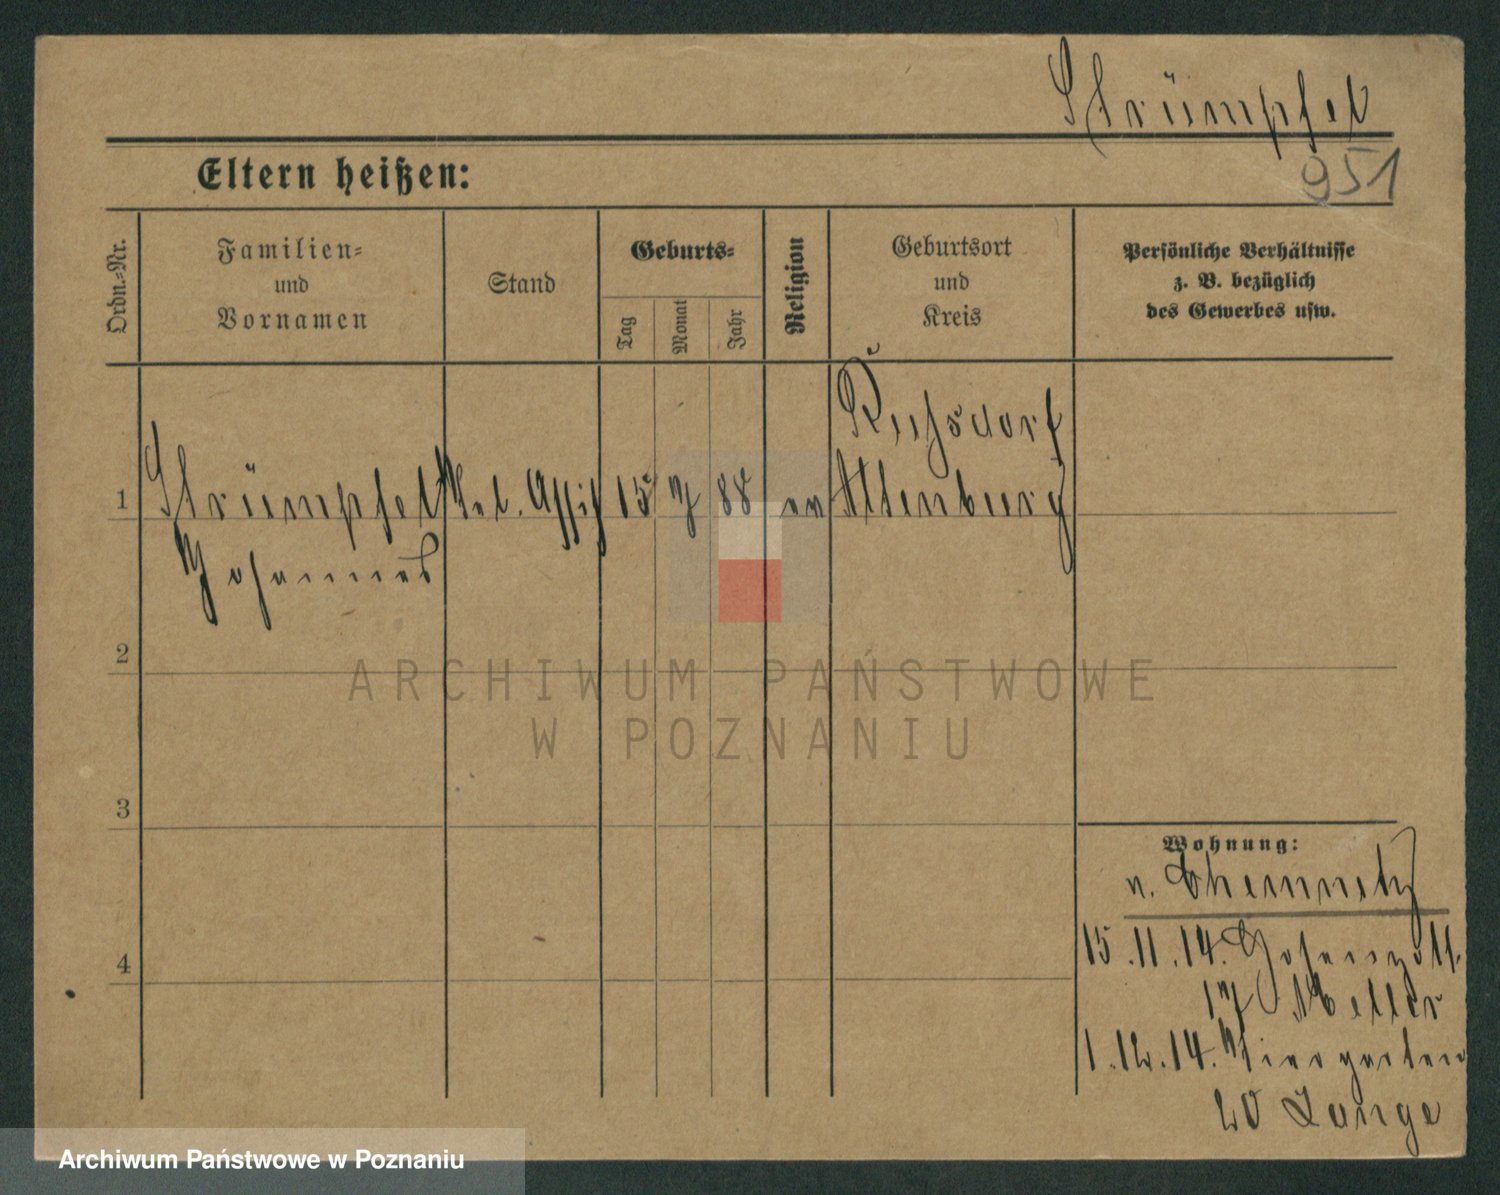 Strümpfel
951
Eltern heißen:
Ordn.-Nr.
Familien-
und
Vornamen
Stand
Geburts-
Tag
Monat
Jahr
Religion
Geburtsort
und
Kreis
Persönliche Verhältnisse
z. B. bezüglich
des Gewerbes usw.
1 Strümpfel 15 7 88 ev Altenburg
Johannes
2
3
4
Wohnung:
n. Chemnitz
15.11.14. Hohenzoll.
17
1.12.14. Tiergarten
20 Lange
ARCHIWUM PAŃSTWOWE
W POZNANIU
Archiwum Państwowe w Poznaniu